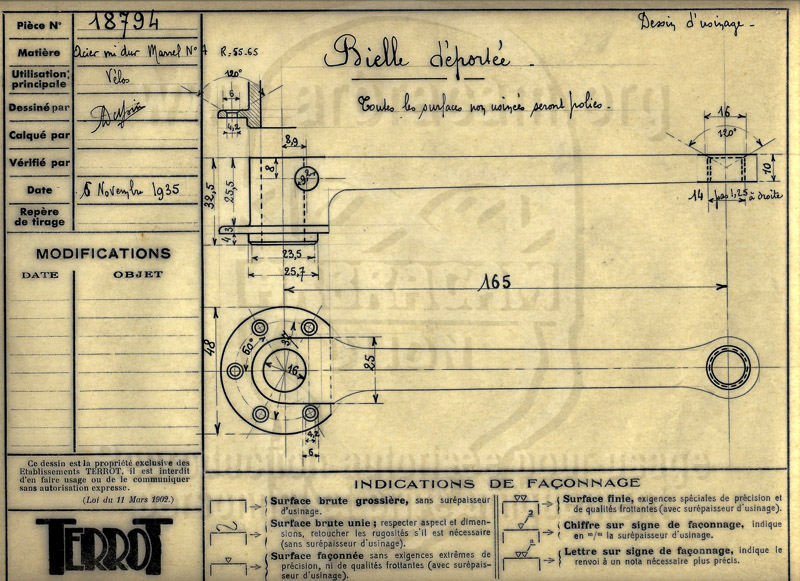 Pièce N° 18794
Matière Acier mi dur Marrel N° 7 R=55-65
Utilisation principale Vélos
Dessiné par
Calqué par
Vérifié par
Date 6 Novembre 1935
Repère de tirage
MODIFICATIONS
DATE OBJET
Ce dessin est la propriété exclusive des
Etablissements TERROT, il est interdit
d'en faire usage ou de le communiquer
sans autorisation expresse.
(Loi du 11 Mars 1902.)
TERROT
Dessin d'usinage -
Bielle déportée -
Toutes les surfaces non usinées seront polies -
120°
6
4,2
8,9
8
9,2
32,5
25,5
3
4
23,5
25,7
16
120°
10
14 pas 1,25 à droite
165
48
60°
37
16
25
4,2
6
INDICATIONS DE FAÇONNAGE
Surface brute grossière, sans surépaisseur
d'usinage.
Surface brute unie ; respecter aspect et dimen-
sions, retoucher les rugosités s'il est nécessaire
(sans surépaisseur d'usinage).
Surface façonnée sans exigences extrêmes de
précision, ni de qualités frottantes (avec surépais-
seur d'usinage).
Surface finie, exigences spéciales de précision et
de qualités frottantes (avec surépaisseur d'usinage).
Chiffre sur signe de façonnage, indique
en =/= la surépaisseur d'usinage.
Lettre sur signe de façonnage, indique le
renvoi à un nota nécessaire plus précis.